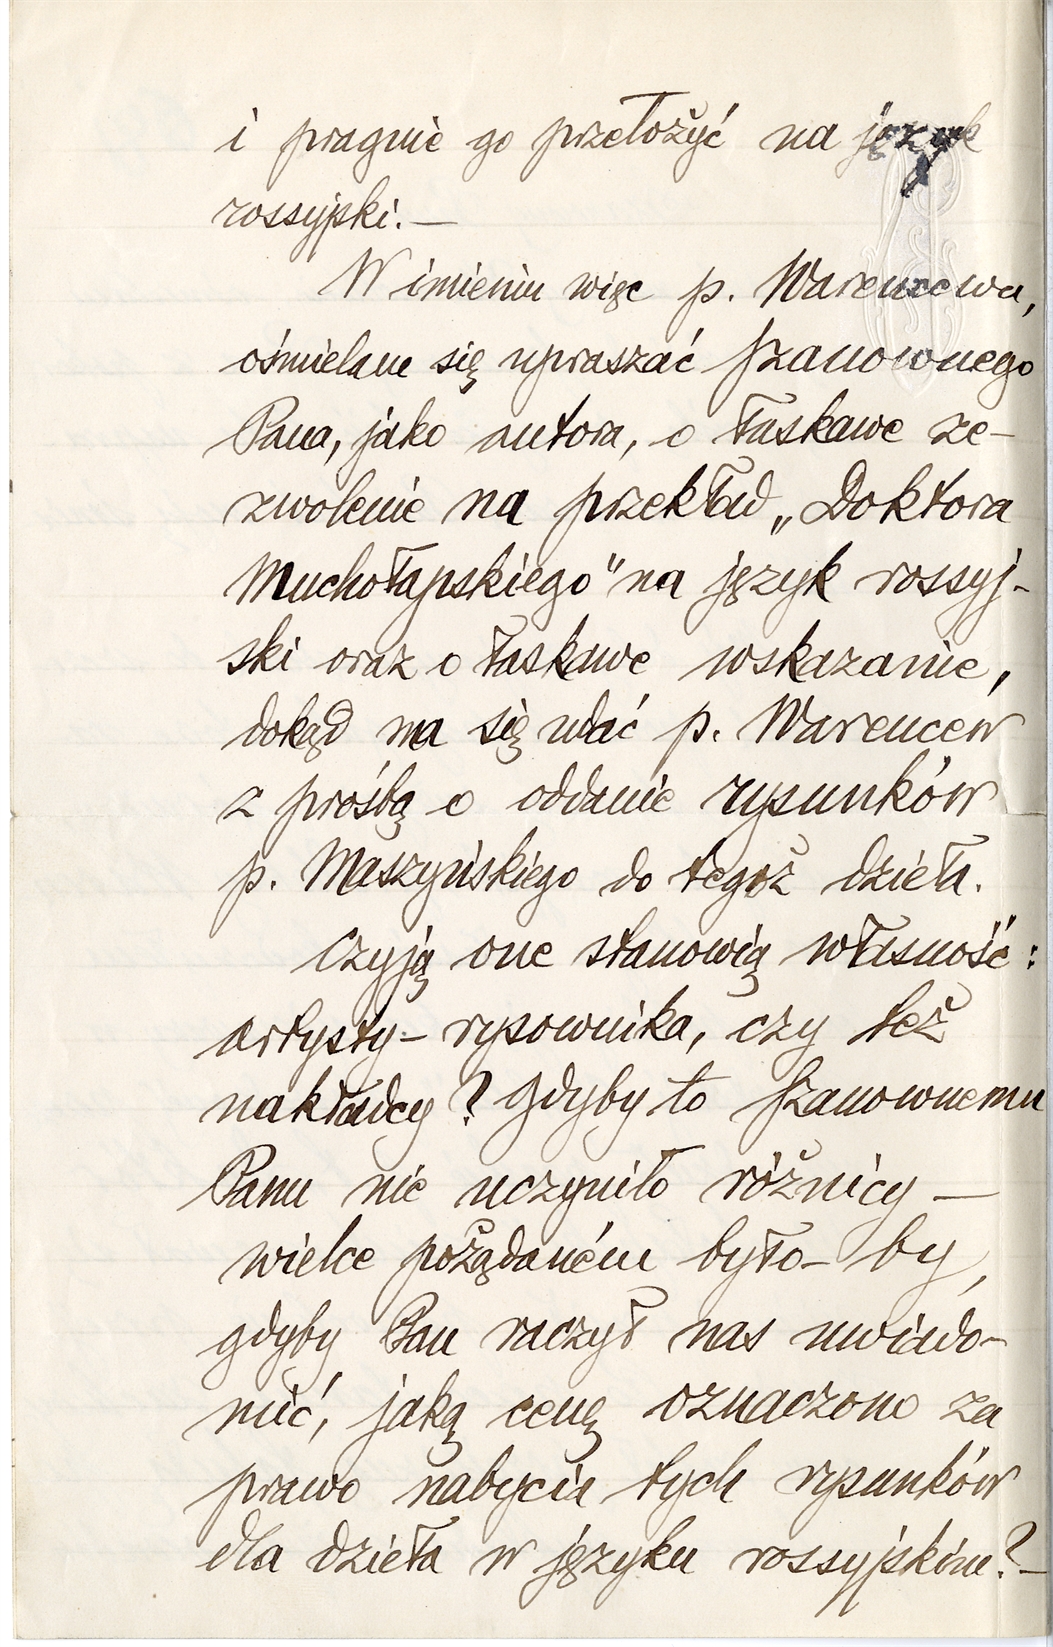 i pragnie go przełożyć na język
rossyjski.—
W imieniu więc p. Warencewa,
ośmielam się upraszać Szanownego
Pana, jako autora, o łaskawe ze-
zwolenie na przekład „Doktora
Muchołapskiego" na język rossyj-
ski oraz o łaskawe wskazanie,
dokąd ma się udać p. Warencew
z prośbą o oddanie rysunków
p. Maszyńskiego do tegoż dzieła.
Czyją one stanowią własność:
artysty-rysownika, czy też
nakładcy? Gdyby to Szanownemu
Panu nie uczyniło różnicy —
wielce pożądaném było-by,
gdyby Pan raczył nas uwiado-
mić, jaką cenę oznaczono za
prawo nabycia tych rysunków
dla dzieła w języku rossyjskim?—